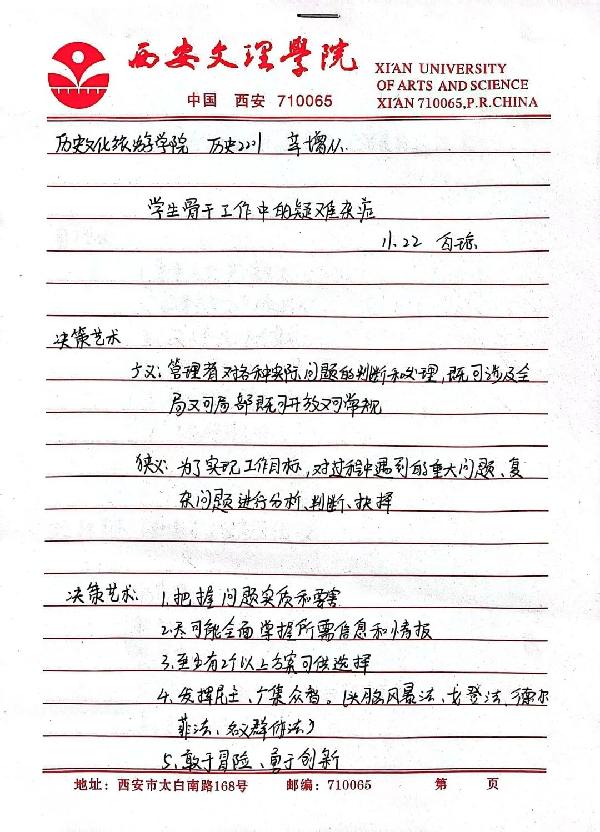 西安文理學院
XI'AN UNIVERSITY
OF ARTS AND SCIENCE
中国 西安 710065
XI'AN 710065,P.R.CHINA
历史文化旅游学院 历史2201 辛增从
学生骨干工作中的疑难杂症
11.22 百琼
决策艺术
广义:管理者对各种实际问题的判断和处理,既可涉及全
局又可局部既可开放又可常规
狭义:为了实现工作目标,对过程中遇到的重大问题、复
杂问题进行分析、判断、抉择
决策艺术: 1.把握问题实质和要害
2.尽可能全面掌握所需信息和情报
3.至少有2个以上方案可供选择
4.发挥民主、广集众智。(头脑风暴法、戈登法、德尔
菲法、名义群体法)
5.敢于冒险、勇于创新
地址:西安市太白南路168号 邮编:710065 第 页